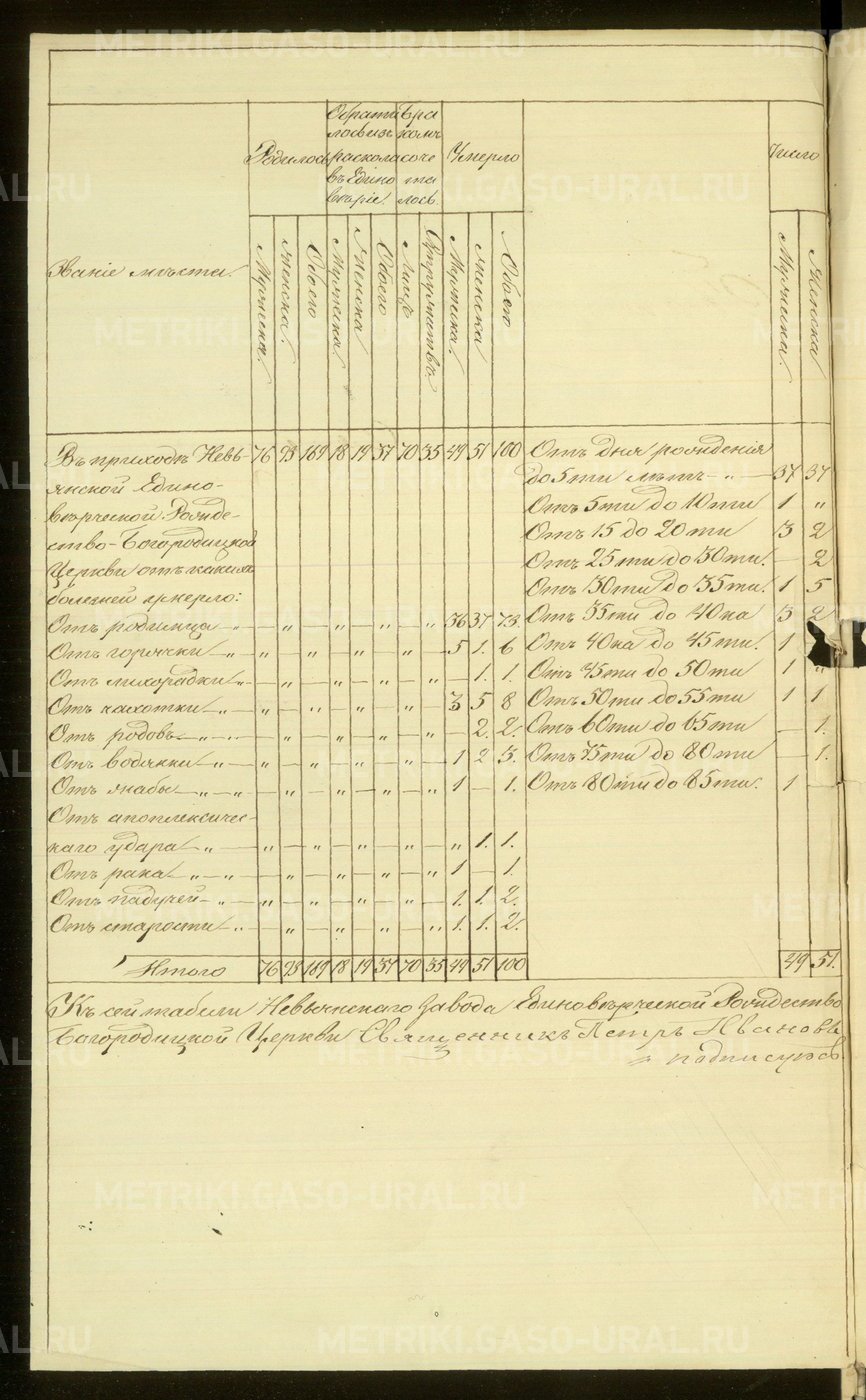 METRIKI.GASO-URAL.RU
Званіе мѣста.
Родилось
Обрати
лось изъ
раскола
въ Едино
вѣріе.
Бра
комъ
соче
та
лось.
Умерло
Число
Мужеска.
Женска.
Обоего
Мужеска.
Женска
Обоего
Лицъ
Супружествъ.
Мужеска.
Женска
Обоего
Мужеска.
Женска
Въ приходѣ Невь- 76 93 169 18 19 37 70 35 49 51 100
янской Едино-
вѣрческой Рожде-
ство-Богородицкой
Церкви отъ какихъ
болезней умерло:
Отъ родимца — „ — „ — „ — „ — „ 36 37 73.
Отъ горячки — „ — „ — „ — „ — „ — 5 1. 6
Отъ лихорадки „ — „ — „ — „ — „ — 1. 1.
Отъ чахотки — „ — „ — „ — „ — „ — 3 5 8
Отъ родовъ — „ — „ — „ — „ — „ — 2. 2.
Отъ водянки — „ — „ — „ — „ — „ — 1 2 3.
Отъ жабы — „ — „ — „ — „ — „ — „ 1 — 1.
Отъ апоплексичес-
каго удара — „ — „ — „ — „ — „ — „ 1. 1.
Отъ рака — „ — „ — „ — „ — „ — „ 1 — 1.
Отъ падучей — „ — „ — „ — „ — „ — 1. 1. 2.
Отъ старости — „ — „ — „ — „ — „ 1. 1. 2.
Итого 76 93 169 18 19 37 70 35 49 51 100
Отъ дня рожденія
до 5ти лѣтъ — „ — 37 37
Отъ 5ти до 10ти 1 „
Отъ 15 до 20ти 3 2
Отъ 25ти до 30ти. — 2
Отъ 30ти до 35ти. 1 5
Отъ 35ти до 40ка 3 2
Отъ 40ка до 45ти. 1
Отъ 45ти до 50ти 1 „
Отъ 50ти до 55ти 1 1
Отъ 60ти до 65ти — 1.
Отъ 75ти до 80ти — 1.
Отъ 80ти до 85ти. 1 —
49 51.
Къ сей табели Невьянскаго завода Единовѣрческой Рождество
Богородицкой Церкви Священникъ Петръ Ивановъ
подписуюсь.